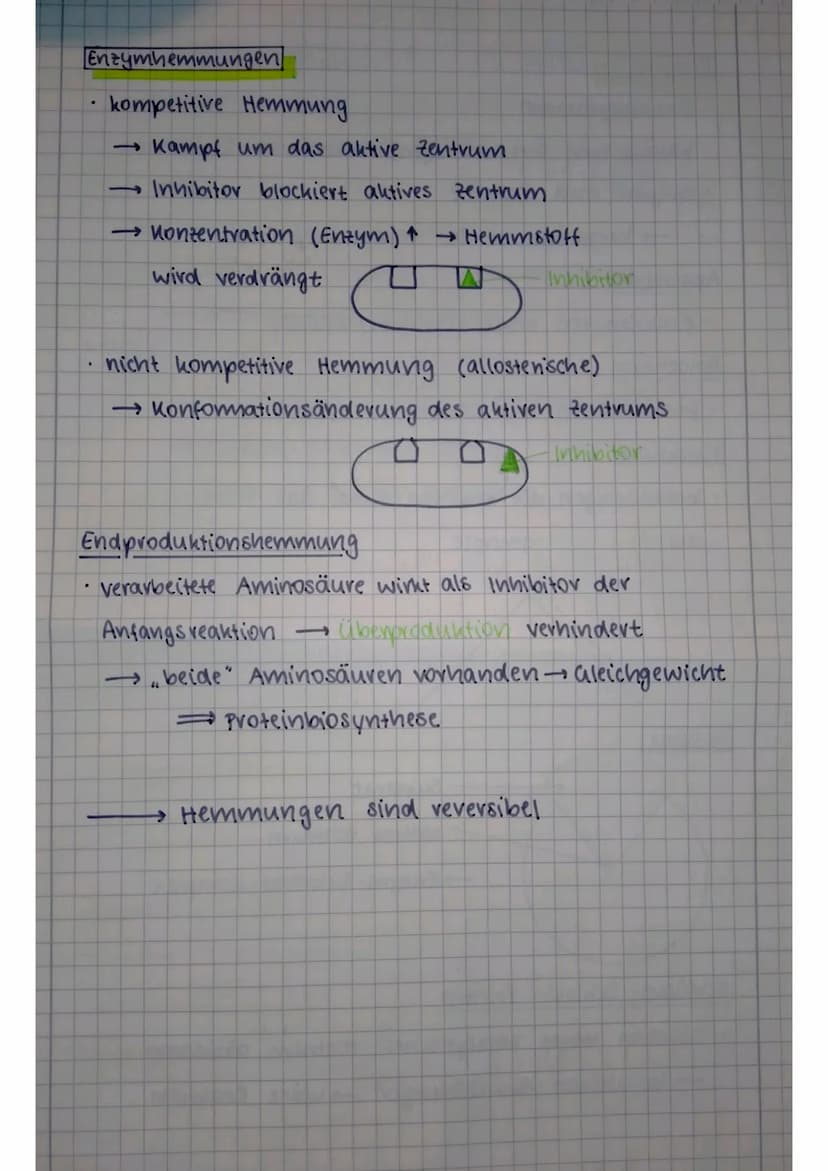 Enzymhemmungen
· kompetitive Hemmung
→ Kampf um das aktive Zentrum
→ Inhibitor blockiert aktives Zentrum
→ Konzentration (Enzym) ↑ → Hemmstoff
wird verdrängt
Inhibitor
· nicht kompetitive Hemmung (allosterische)
→ Konformationsänderung des aktiven Zentrums
Inhibitor
Endproduktionshemmung
· verarbeitete Aminosäure wirkt als Inhibitor der
Anfangsreaktion → Überproduktion verhindert
→ „beide“ Aminosäuren vorhanden → Gleichgewicht
⇒ Proteinbiosynthese
→ Hemmungen sind reversibel